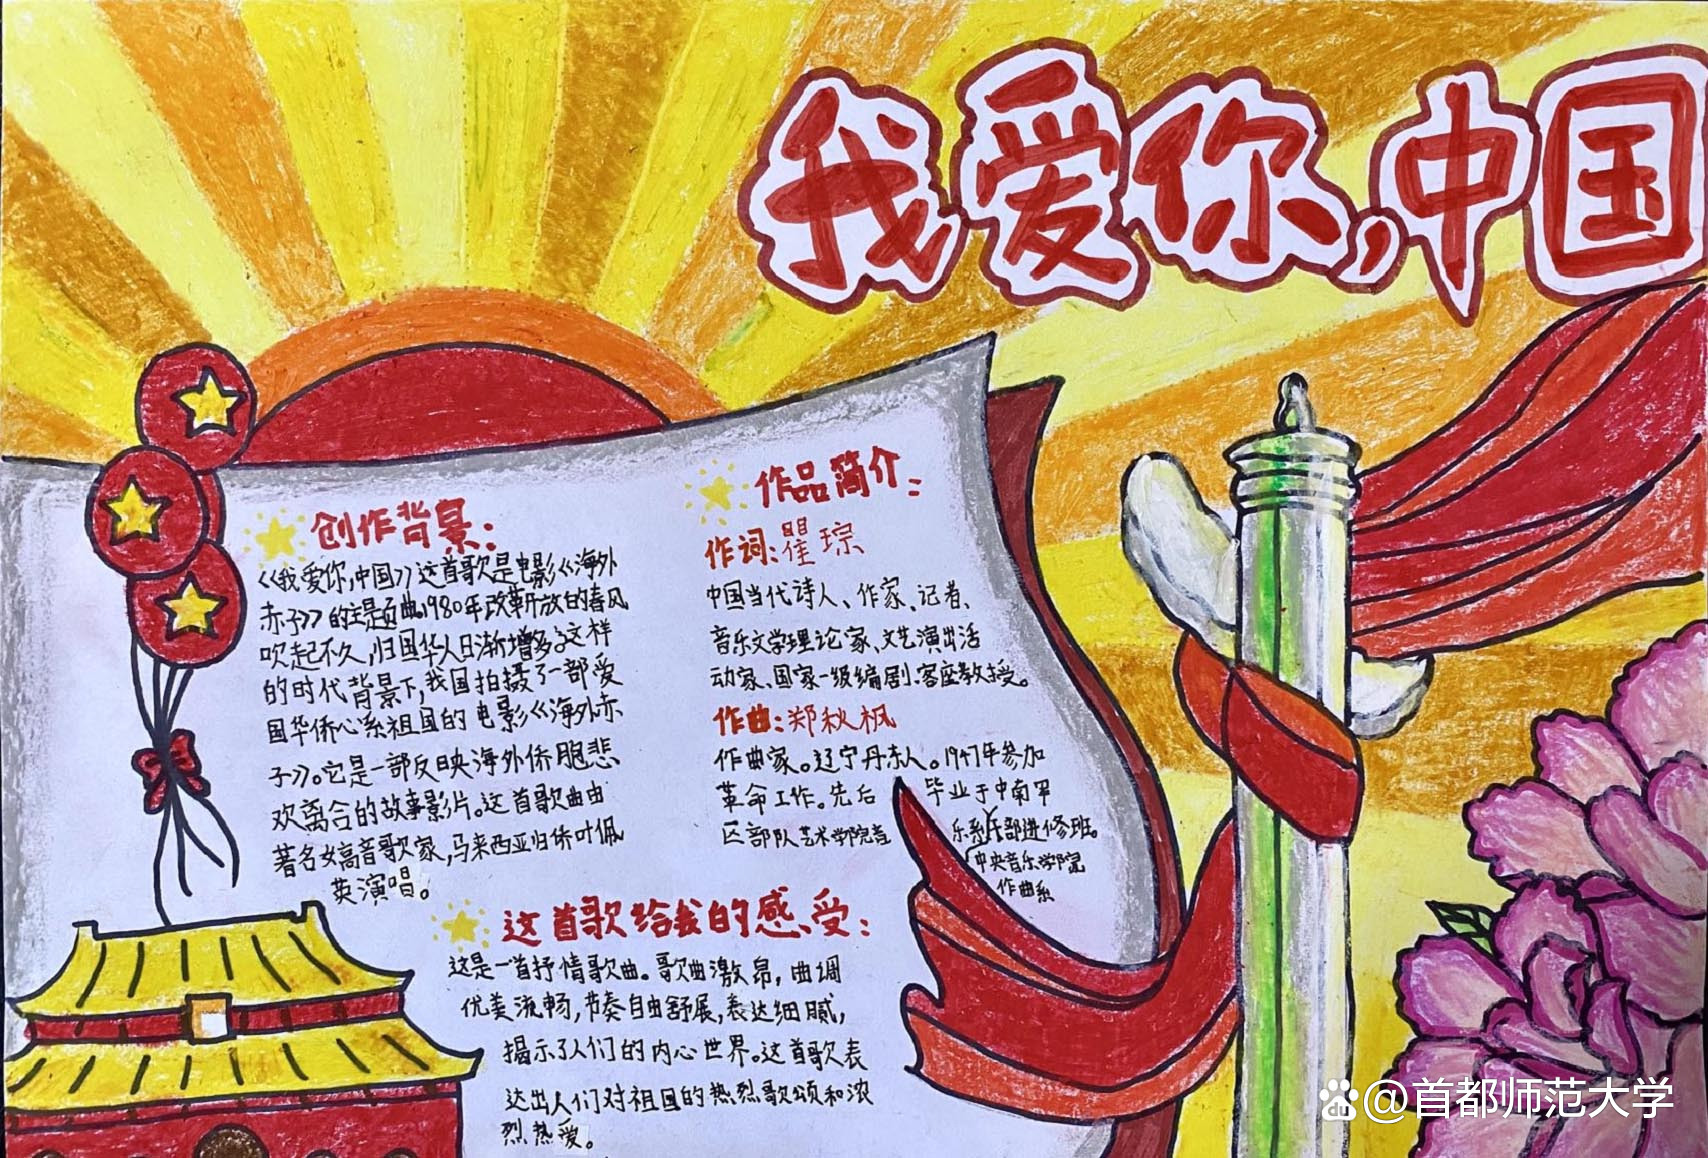 我爱你,中国
创作背景:
《我爱你,中国》这首歌是电影《海外
赤子》的主题曲,1980年改革开放的春风
吹起不久,归国华人日渐增多。这样
的时代背景下,我国拍摄了一部爱
国华侨心系祖国的电影《海外赤
子》。它是一部反映海外侨胞悲
欢离合的故事影片。这首歌曲由
著名女高音歌家,马来西亚归侨叶佩
英演唱。
作品简介:
作词:瞿琮
中国当代诗人、作家、记者、
音乐文学理论家、文艺演出活
动家、国家一级编剧、客座教授。
作曲:郑秋枫
作曲家。辽宁丹东人。1947年参加
革命工作。先后 毕业于中南军
区部队艺术学院音 乐系、干部进修班。
中央音乐学院
作曲系
这首歌给我的感受:
这是一首抒情歌曲。歌曲激昂,曲调
优美流畅,节奏自由舒展,表达细腻,
揭示了人们的内心世界。这首歌表
达出人们对祖国的热烈歌颂和浓
烈热爱。
du @首都师范大学